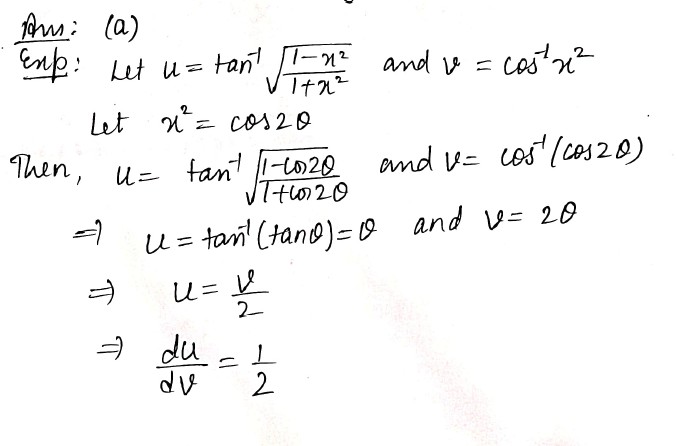 Ans: (a)
Exp: Let u = tan⁻¹ √((1-x²)/(1+x²)) and v = cos⁻¹x²
Let x² = cos2θ
Then, u = tan⁻¹ √((1-cos2θ)/(1+cos2θ)) and v = cos⁻¹(cos2θ)
⇒ u = tan⁻¹(tanθ) = θ and v = 2θ
⇒ u = v/2
⇒ du/dv = 1/2